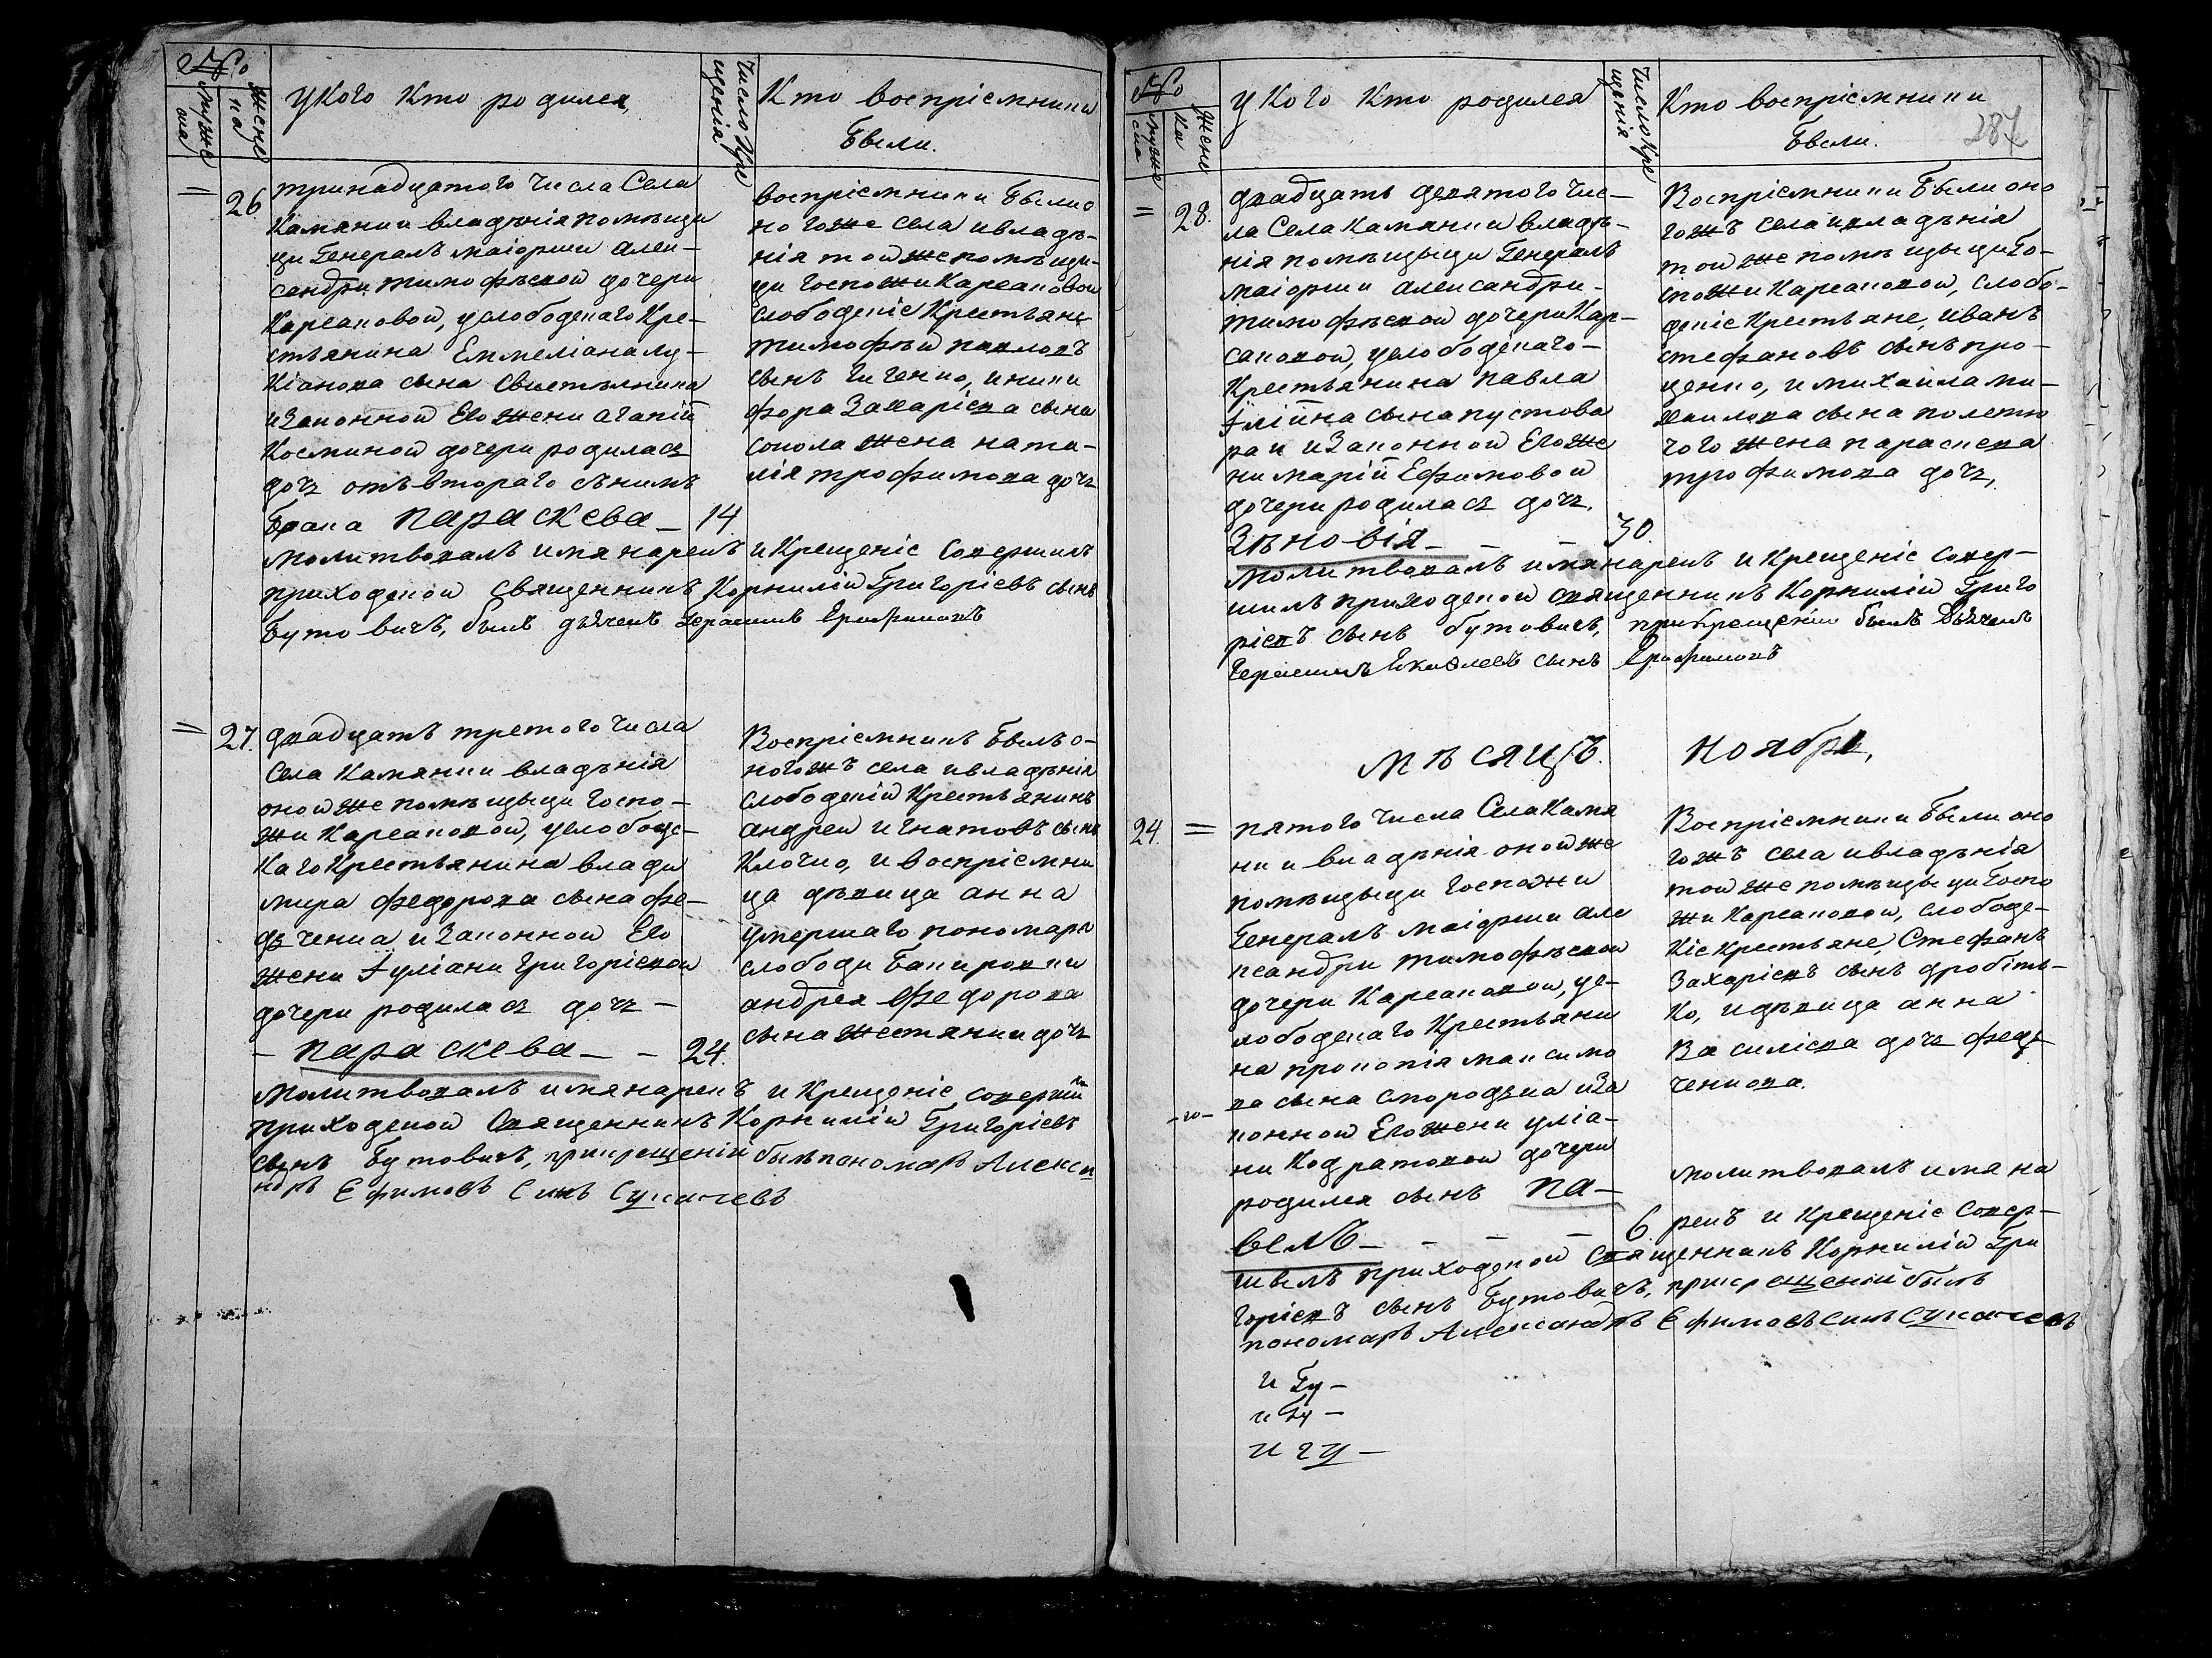 №
Муже
ска
Женс
ка
У Кого Кто родился
Число Кре
щенія
Кто воспріемники
Были.
= 26. тринадцатого числа Села
Камянки владѣнія помѣщи
ци Генералъ маіорши Алек-
сандри тимофѣевой дочери
Карсановой, услободскаго Кре-
стьянина Еммеліана Лу-
кіанова сина
и Законной Его Жени Агапіи
Косминой дочери родилась
дочь отъ второго съ нимъ
Брака Параскева - 14
воспріемники Были о
ного же села и владѣ-
нія той же помѣщи-
ци госпожи Карсановой
слободскіе Крестьяне
тимофѣй павловъ
синъ и ники
фора Захаріева сына
сокола жена ната-
лія трофимова дочь
молитвовалъ имя нарекъ и Крещеніе Совершилъ
приходской Священникъ Корнилій Григоріевъ синъ
Бутовичъ, былъ дьячекъ Герасимъ Ерофимовъ
= 27. двадцать третого числа
Села Камянки владѣнія
оной же помѣщыци госпо-
жи Карсановой, услободс-
каго Крестьянина влади
мира федорова сына фе-
дченка и Законной Его
жени Іуліани Григоріевой
дочери родилась дочь -
- Параскева - - 24.
Воспріемникъ Былъ о-
ногожъ села и владѣнія
слободскій Крестьянинъ
андрей игнатовъ синъ
Клочко, и воспріемни
ца дѣвица анна
умершаго пономаря
слободи Бакировки
андрея федорова
сина дочь
молитвовалъ имя нарекъ и Крещеніе совершилъ
приходской Священникъ Корнилій Григоріевъ
сынъ Бутовичъ, прикрещеніи былъ пономаръ Алекса
ндръ Ефимовъ Синъ Сукачевъ
№
Муже
ска
Женс
ка
У Кого Кто родился
Число Кре
щенія
Кто воспріемники
Были.
287
= 28. двадцать девятого чис-
ла Села Камянки владѣ-
нія помѣщыци Генералъ
маіорши александри-
тимофѣевой дочери Кар-
сановой, услободскаго-
Крестьянина павла
Іліина сына пустова
ра и Законной Его же
ни маріи Ефимовой
дочери родилась дочь,
Зѣновія - - - 30.
Воспріемники Были оно
гожъ села и владѣнія
той же помѣщыци го-
спожи Карсановой, слобо-
дскіе Крестьяне, иванъ
стефановъ синъ про-
ценко, и михайла ми-
хаилова сына
жена параскева
трофимова дочь,
молитвовалъ имя нарекъ и Крещеніе совер-
шилъ приходской священникъ Корнилій Григо
ріевъ синъ бутовичъ, прикрещеніи былъ Дьячекъ
Герасимъ Яковлевъ синъ Ерофимовъ
Мѣсяцъ. Ноябрь,
24. = пятого числа Села Камя
нки владѣнія оной же
помѣщыци госпожи
Генералъ маіорши але
ксандри тимофѣевой
дочери Карсановой, ус-
лободскаго Крестьяни
на прокопія максимо
-го- ва сына Смородъка и За
конной Его жени уліа-
ни Кодратовой дочери
родился синъ Па-
велъ - - - - 6.
Воспріемники Были оно
гожъ села и владѣнія
той же помѣщыци госпо
жи Карсановой, слободс-
кіе крестьяне, Стефанъ
Захаріевъ синъ дробить-
ко, и дѣвица анна
Василіева дочь федь
ченкова.
молитвовалъ имя на
рекъ и крещеніе Совер-
шилъ приходской Священникъ Корнилій Гри
горіевъ синъ Бутовичъ, прикрещеніи былъ
пономаръ Александръ Ефимовъ Синъ Сукачевъ
и Гу-
и Гу -
и гу -